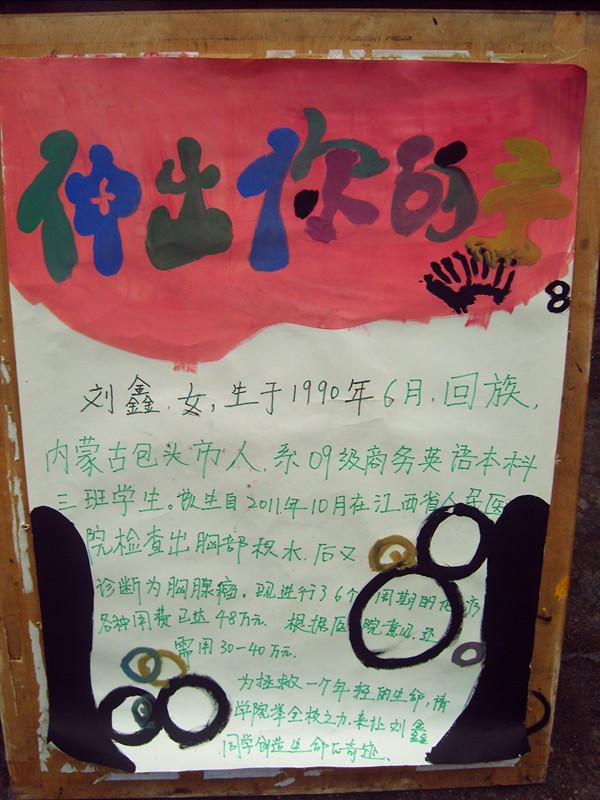 伸出你的手
8
刘鑫,女,生于1990年6月,回族,
内蒙古包头市人,系09级商务英语本科
三班学生。改生自2011年10月在江西省人民医
院检查出胸部积水,后又
诊断为胸腺瘤。现进行了6个周期的化疗
各种用费已达48万元。根据医院意见,还
需用30-40万元.
为拯救一个年轻的生命,请
学院举全校之力,来让刘鑫
同学创造生命的奇迹.